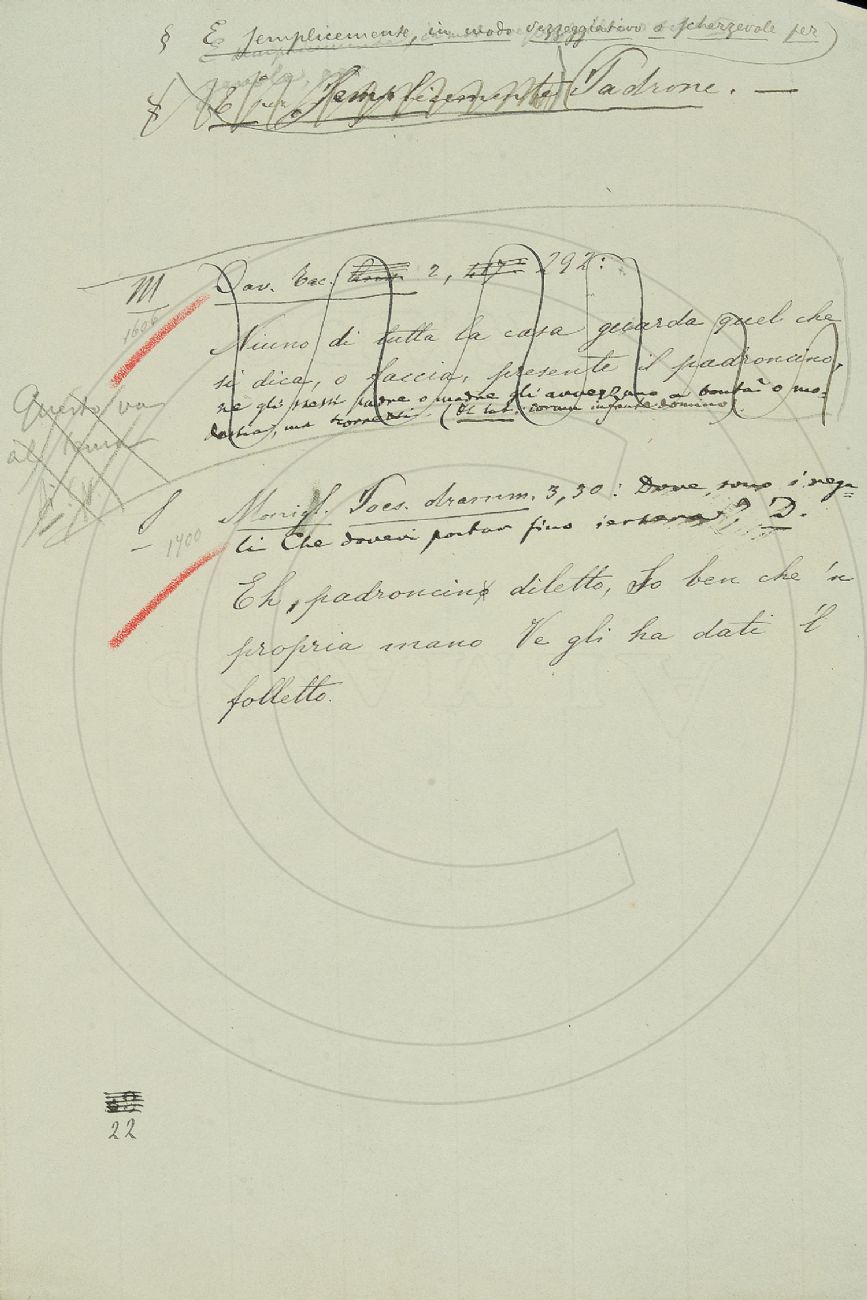 § E semplicemente, in modo vezzeggiativo o scherzevole per
§ E per Semplicemente Padrone. —
III Dav. Tac. 2, 292:
1606
Niuno di tutta la casa guarda quel che
si dica, o faccia, presente il padroncino,
nè gli stessi padre o madre gli avvezzano a bontà o mo-
destia, ma (Il lat. coram infante domino).
Questo va
al tema
I Monigl. Poes. dramm. 3, 30: Dove sono i rega-
1700
li Che dovevi portar fino iersera? D.
Eh, padroncino diletto, So ben che 'n
propria mano Ve gli ha dati 'l
folletto.
22